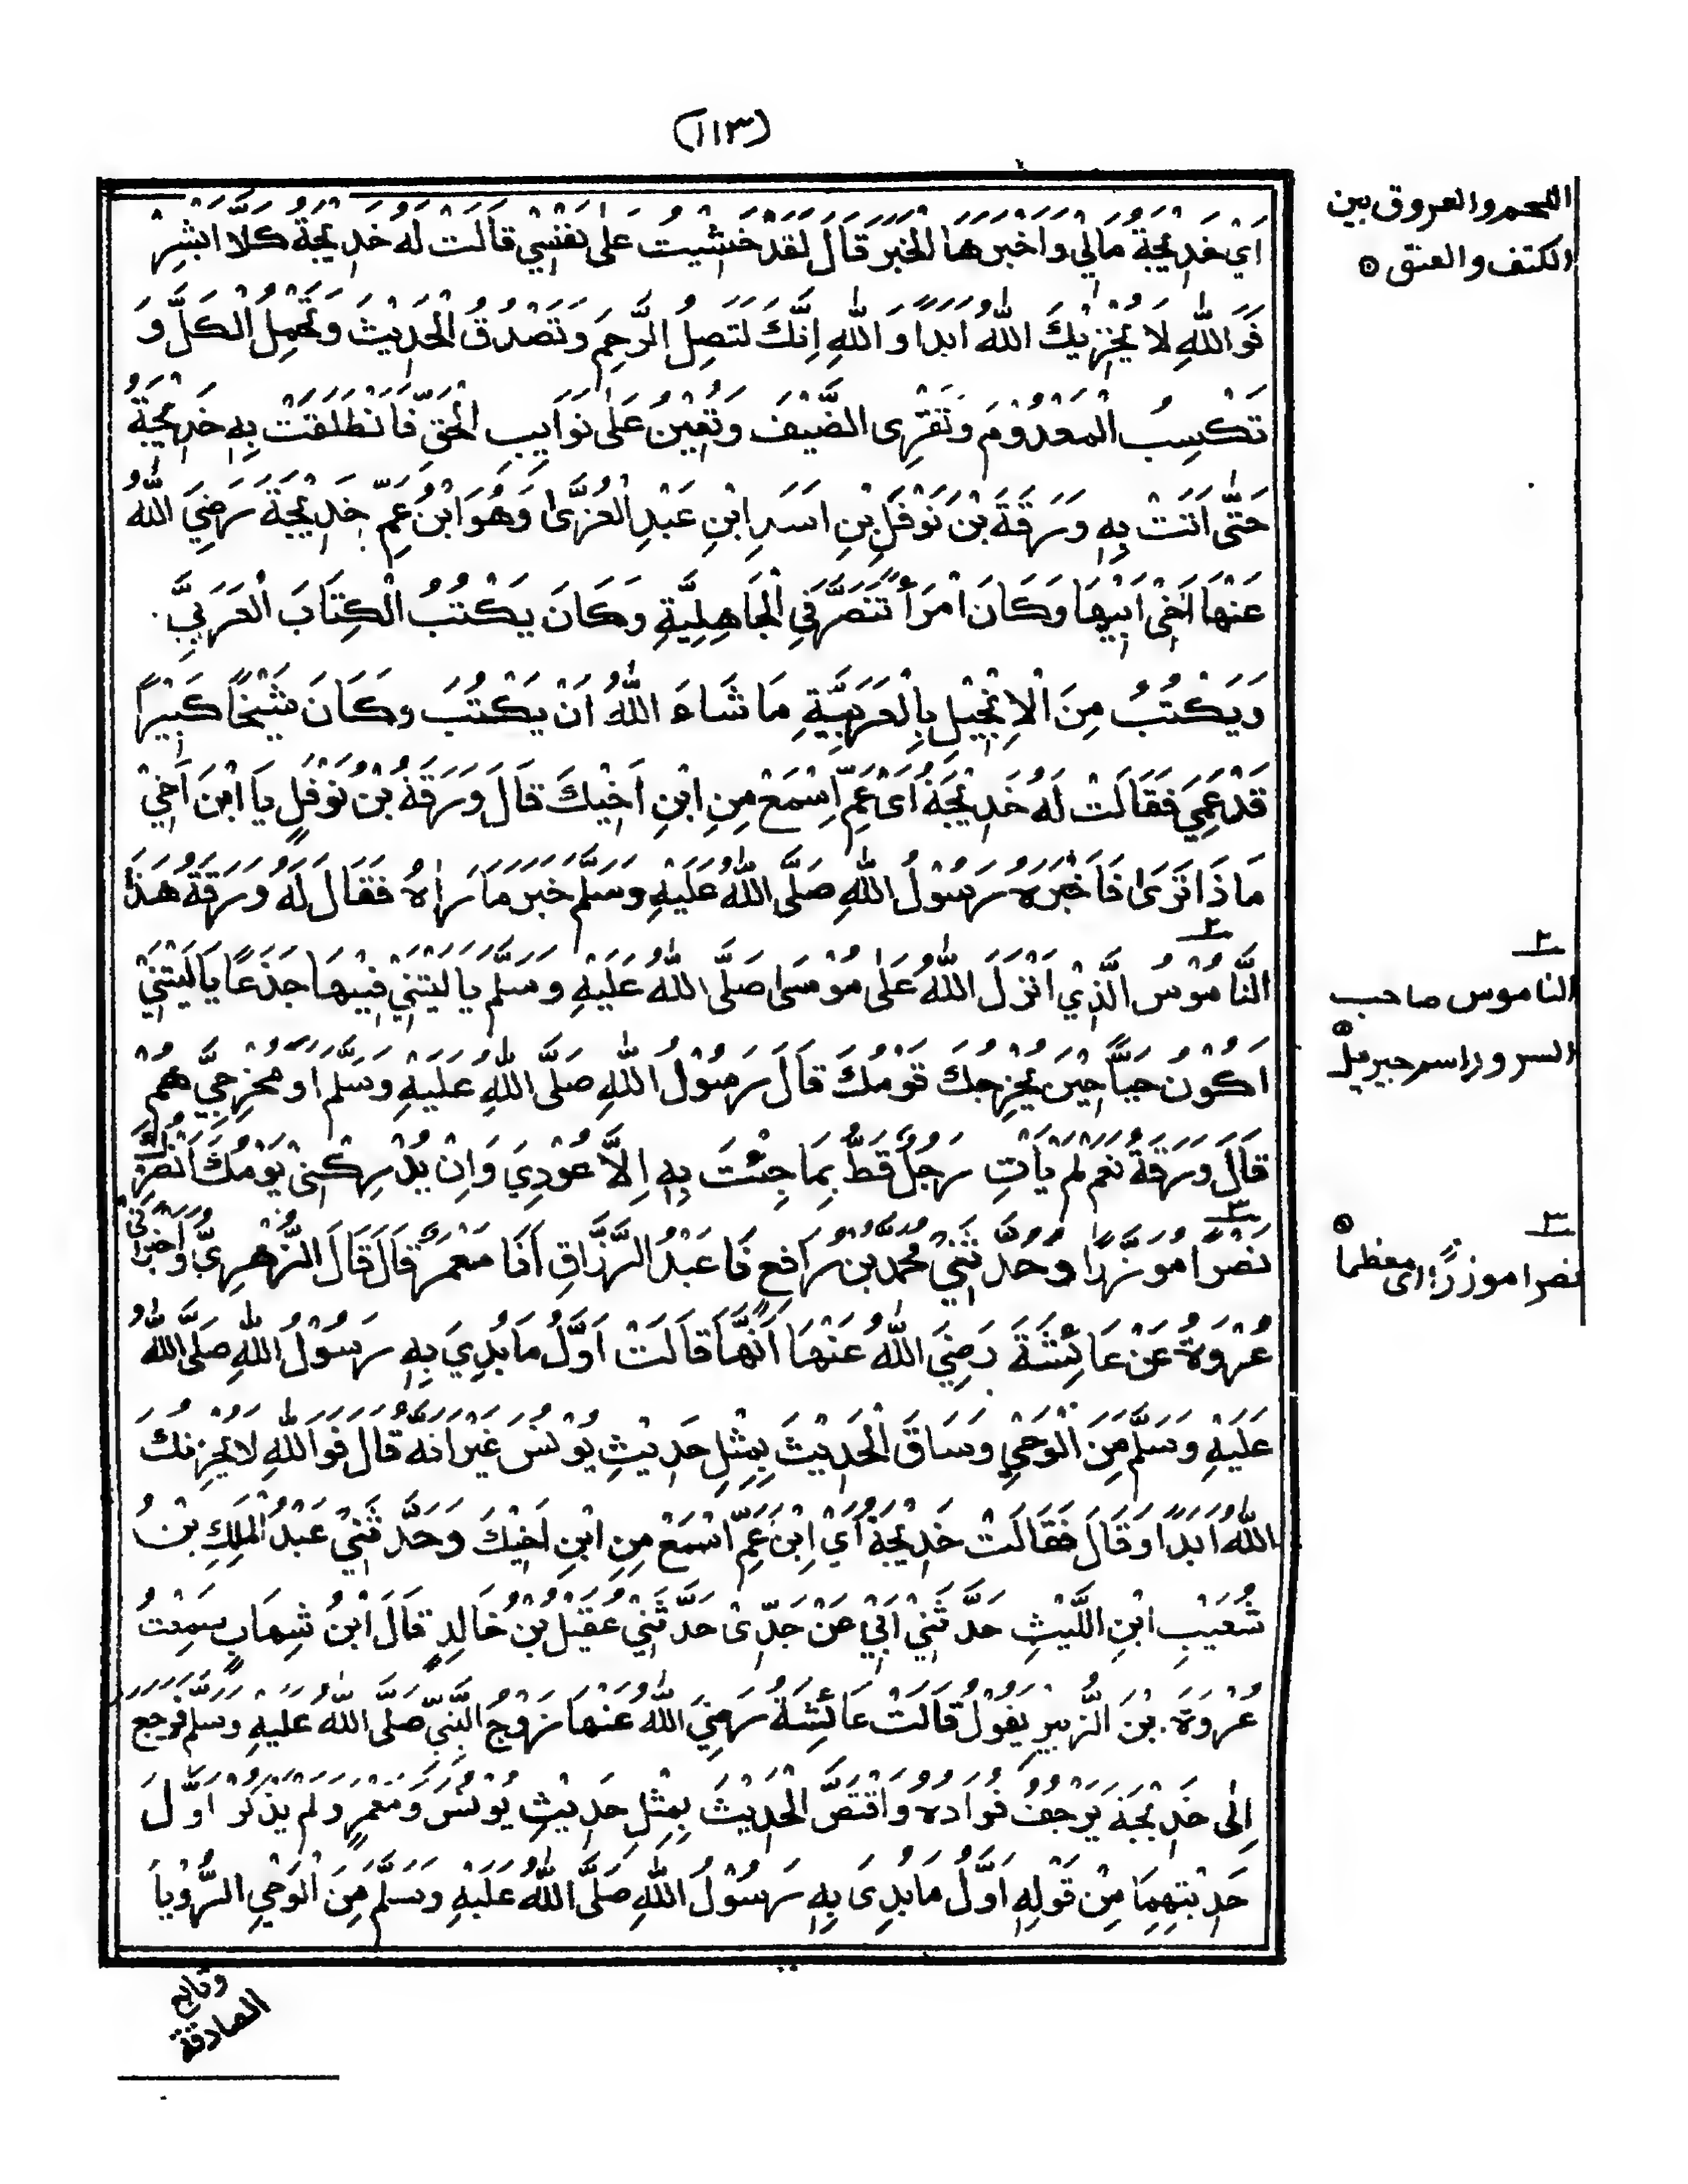 (١١٣)
اَيْ خَدِيْجَةُ مَالِي وَاَخْبَرَهَا الْخَبَرَ قَالَ لَقَدْ خَشِيْتُ عَلٰى نَفْسِيْ قَالَتْ لَهُ خَدِيْجَةُ كَلَّا اَبْشِرْ
فَوَاللّٰهِ لَا يُخْزِيْكَ اللّٰهُ اَبَدًا وَاللّٰهِ اِنَّكَ لَتَصِلُ الرَّحِمَ وَتَصْدُقُ الْحَدِيْثَ وَتَحْمِلُ الْكَلَّ وَ
تَكْسِبُ الْمَعْدُوْمَ وَتَقْرِى الضَّيْفَ وَتُعِيْنُ عَلٰى نَوَايِبِ الْحَقِّ فَانْطَلَقَتْ بِهِ خَدِيْجَةُ
حَتّٰى اَتَتْ بِهِ وَرَقَةَ بْنَ نَوْفَلِ بْنِ اَسَدِ ابْنِ عَبْدِ الْعُزّٰى وَهُوَ ابْنُ عَمِّ خَدِيْجَةَ رَضِيَ اللّٰهُ
عَنْهَا اَخِىْ اَبِيْهَا وَكَانَ امْرَأً تَنَصَّرَ فِي الْجَاهِلِيَّةِ وَكَانَ يَكْتُبُ الْكِتَابَ الْعَرَبِيَّ
وَيَكْتُبُ مِنَ الْاِنْجِيْلِ بِالْعَرَبِيَّةِ مَا شَاءَ اللّٰهُ اَنْ يَكْتُبَ وَكَانَ شَيْخًا كَبِيْرًا
قَدْ عَمِيَ فَقَالَتْ لَهُ خَدِيْجَةُ اَىْ عَمِّ اِسْمَعْ مِنِ ابْنِ اَخِيْكَ قَالَ وَرَقَةُ بْنُ نَوْفَلٍ يَا ابْنَ اَخِيْ
مَاذَا تَرٰى فَاَخْبَرَهُ رَسُوْلُ اللّٰهِ صَلَّى اللّٰهُ عَلَيْهِ وَسَلَّمَ خَبَرَ مَا رَاٰهُ فَقَالَ لَهُ وَرَقَةُ هٰذَا
النَّامُوْسُ الَّذِيْ اَنْزَلَ اللّٰهُ عَلٰى مُوْسٰى صَلَّى اللّٰهُ عَلَيْهِ وَسَلَّمَ يَا لَيْتَنِيْ فِيْهَا جَذَعًا يَا لَيْتَنِيْ
اَكُوْنُ حَيًّا حِيْنَ يُخْرِجُكَ قَوْمُكَ قَالَ رَسُوْلُ اللّٰهِ صَلَّى اللّٰهُ عَلَيْهِ وَسَلَّمَ اَوَ مُخْرِجِيَّ هُمْ
قَالَ وَرَقَةُ نَعَمْ لَمْ يَأْتِ رَجُلٌ قَطُّ بِمَا جِئْتَ بِهِ اِلَّا عُوْدِيَ وَاِنْ يُدْرِكْنِىْ يَوْمُكَ اَنْصُرْكَ
نَصْرًا مُوَزَّرًا وَحَدَّثَنِيْ مُحَمَّدُ بْنُ رَافِعٍ نَا عَبْدُ الرَّزَّاقِ اَنَا مَعْمَرٌ قَالَ قَالَ الزُّهْرِيُّ وَاَخْبَرَنِيْ
عُرْوَةُ عَنْ عَائِشَةَ رَضِيَ اللّٰهُ عَنْهَا اَنَّهَا قَالَتْ اَوَّلُ مَا بُدِيَ بِهِ رَسُوْلُ اللّٰهِ صَلَّى اللّٰهُ
عَلَيْهِ وَسَلَّمَ مِنَ الْوَحْيِ وَسَاقَ الْحَدِيْثَ بِمِثْلِ حَدِيْثِ يُوْنُسَ غَيْرَ اَنَّهُ قَالَ فَوَاللّٰهِ لَا يُحْزِنُكَ
اللّٰهُ اَبَدًا وَقَالَ فَقَالَتْ خَدِيْجَةُ اَيْ اِبْنَ عَمِّ اسْمَعْ مِنِ ابْنِ اَخِيْكَ وَحَدَّثَنِيْ عَبْدُ الْمَلِكِ بْنُ
شُعَيْبِ ابْنِ اللَّيْثِ حَدَّثَنِيْ اَبِيْ عَنْ جَدِّىْ حَدَّثَنِيْ عُقَيْلُ بْنُ خَالِدٍ قَالَ ابْنُ شِهَابٍ سَمِعْتُ
عُرْوَةَ بْنَ الزُّبَيْرِ يَقُوْلُ قَالَتْ عَائِشَةُ رَضِيَ اللّٰهُ عَنْهَا زَوْجُ النَّبِيِّ صَلَّى اللّٰهُ عَلَيْهِ وَسَلَّمَ فَرَجَعَ
اِلٰى خَدِيْجَةَ يَرْجُفُ فُوَادُهُ وَاقْتَصَّ الْحَدِيْثَ بِمِثْلِ حَدِيْثِ يُوْنُسَ وَمَعْمَرٍ وَلَمْ يَذْكُرْ اَوَّلَ
حَدِيْثِهِمَا مِنْ قَوْلِهِ اَوَّلُ مَا بُدِىَ بِهِ رَسُوْلُ اللّٰهِ صَلَّى اللّٰهُ عَلَيْهِ وَسَلَّمَ مِنَ الْوَحْيِ الرُّوْيَا
الصادقة
اللحم والعروق بين
الكتف والعنق
٢
الناموس صاحب
السر وراسم جبريل
٣
نصرا موزرًا اى معظما